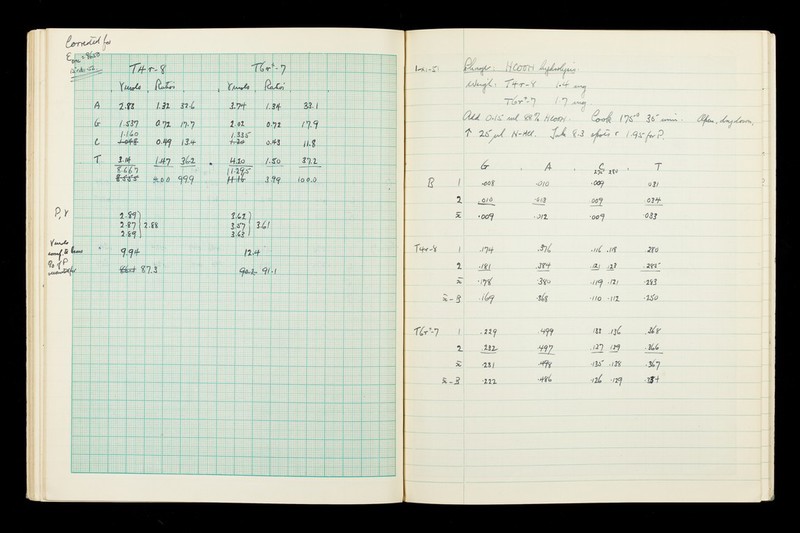 Corrected for
T4r-8 T6r+-7
γmols Ratio γmols Ratio
A 2.88 1.32 32.6 3.74 1.34 33.1
G 1.537 0.72 17.7 2.02 0.72 17.9
1.160 1.335
C 0.49 13.4 0.43 11.8
T 3.14 1.47 36.2 4.20 1.50 37.2
8.667 11.295
4.00 99.9 3.99 100.0
P, γ
2.89 3.62
2.87 2.88 3.57 3.61
2.89 3.63
9.94 12.4
% of P
87.3 91.1
HCOOH hydrolysis.
Weight: T4r-8 1.4 mg
T6r+-7 1.7 mg
Add 0.15 ml 88% HCOOH. Cook 175° 35 min. Open, dry down,
↑ 25 μl N-HCl. Take 8.3 spots + 1.95 for P.
G A C T
B 1 .008 .010 .009 .031
2 .010 .013 .009 .034
x̄ .009 .012 .009 .033
T4r-8 1 .174 .376 .116 .118 .280
2 .181 .384 .121 .123 .285
x̄ .178 .380 .119 .121 .283
x̄-B .169 .368 .110 .112 .250
T6r+-7 1 .229 .499 .136 .368
2 .232 .497 .137 .139 .366
x̄ .231 .498 .135 .138 .367
x̄-B .222 .486 .126 .129 .334